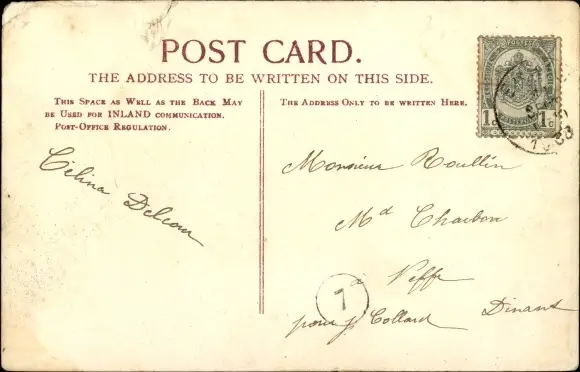 POST CARD.
THE ADDRESS TO BE WRITTEN ON THIS SIDE.
THIS SPACE AS WELL AS THE BACK MAY
BE USED FOR INLAND COMMUNICATION.
POST-OFFICE REGULATION.
THE ADDRESS ONLY TO BE WRITTEN HERE.
1c 1c
Célina Delcour
Monsieur Roullin
Md Charbon
à Neffe
Dinant
pour J Collard
7